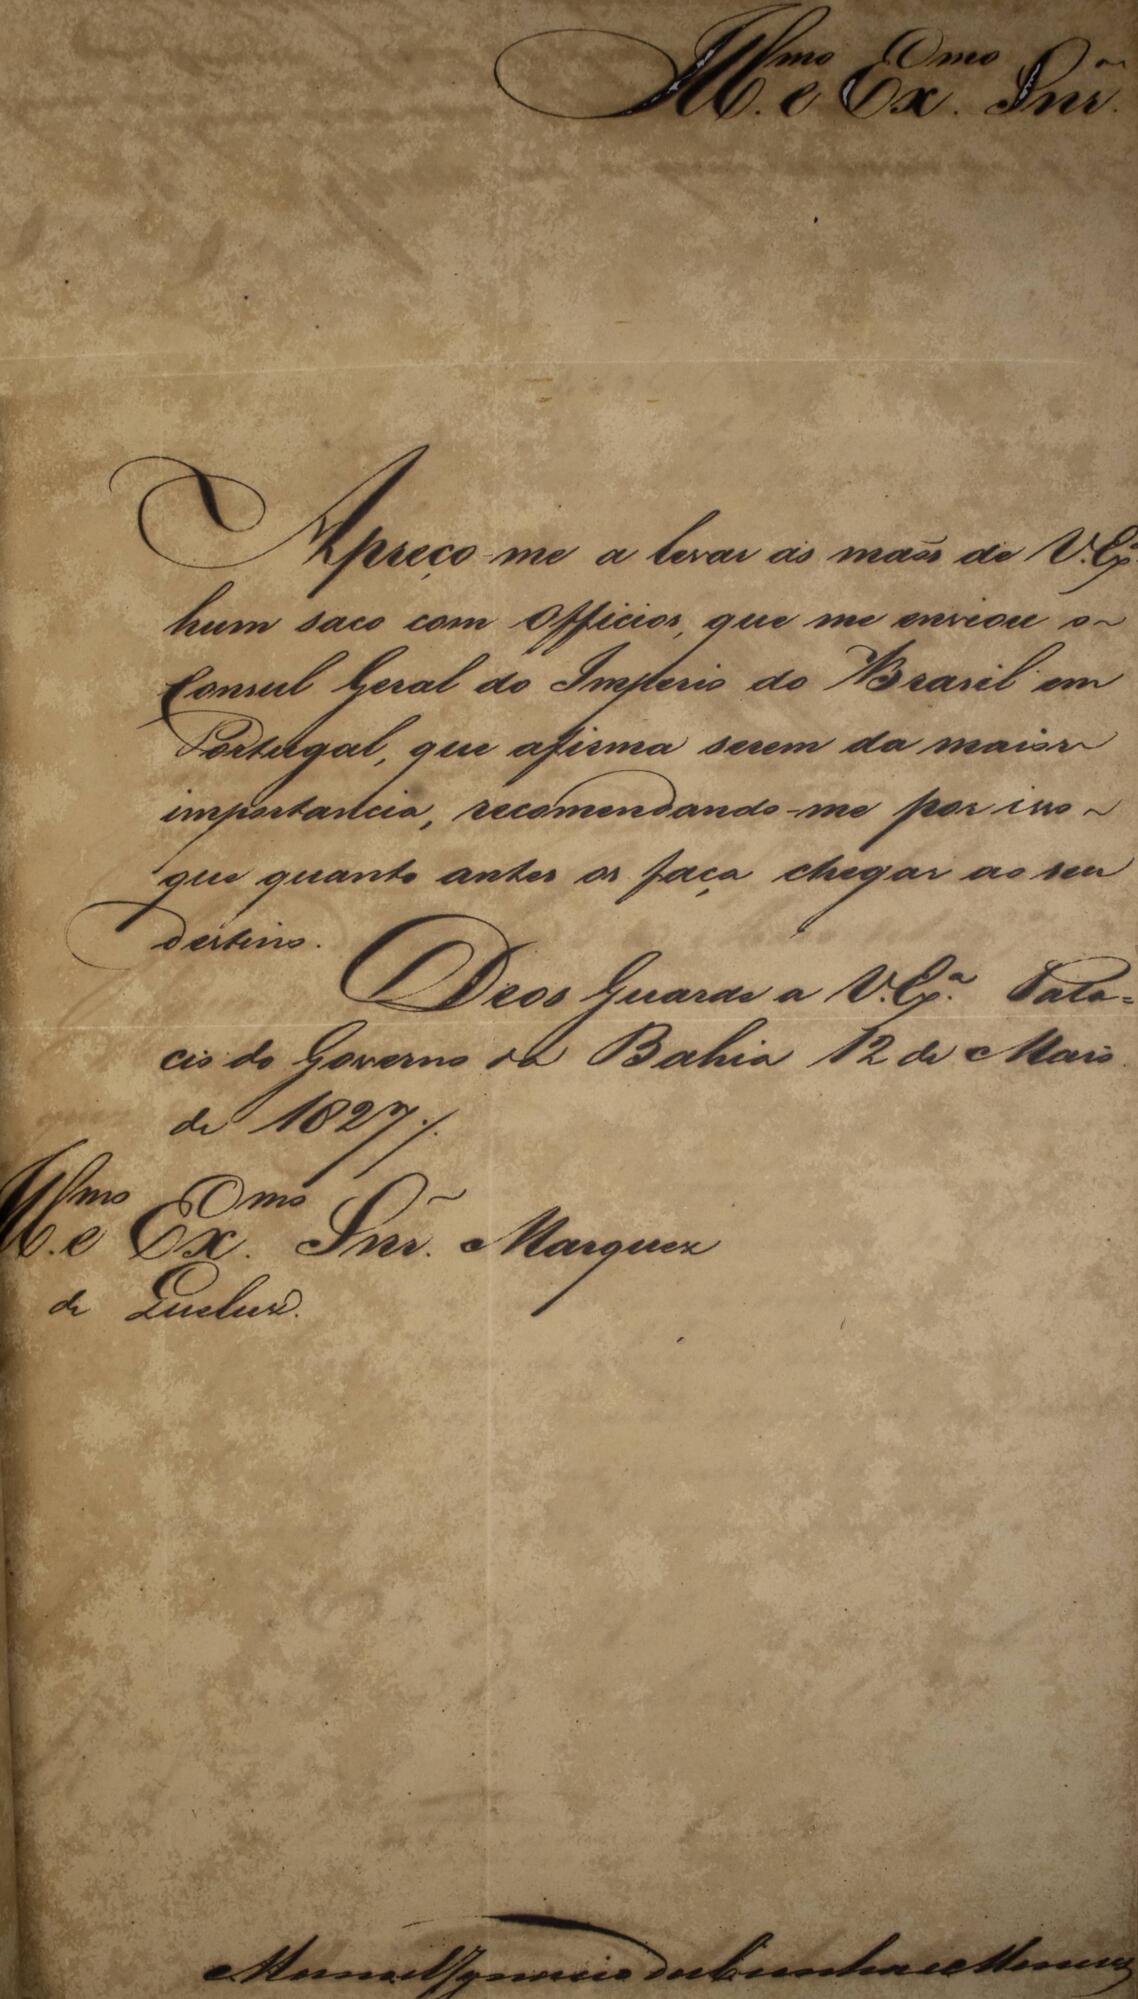 Ill.mo e Ex.mo Snr.
Apreço-me a levar ás maõs de V. Ex.ª
hum saco com Officios, que me enviou o
Consul Geral do Imperio do Brasil em
Portugal, que afirma serem da maior
importancia, recomendando-me por isso
que quanto antes os faça chegar ao seu
destino.
Deos Guarde a V. Ex.ª Pala=
cio do Governo da Bahia 12 de Maio
de 1827.
Ill.mo e Ex.mo Snr. Marquez
de Queluz.
Manoel Ignacio da Cunha e Menezes